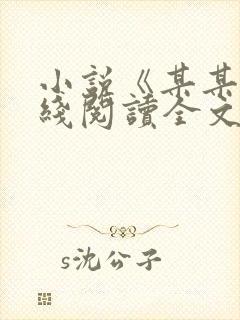 小說《某某
綫閱讀全文
s沈公子